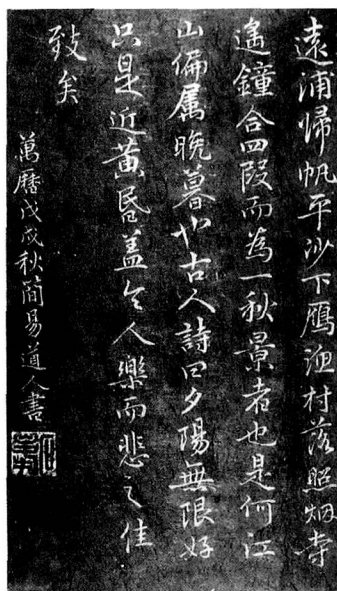 遠浦帰帆平沙下鴈漁村落照烟寺
遙鐘合四段而為一秋景者也是何江
山偏属晩暮也古人詩曰夕陽無限好
只是近黄昏盖令人樂而悲之佳
致矣
萬曆戊戌秋簡易道人書